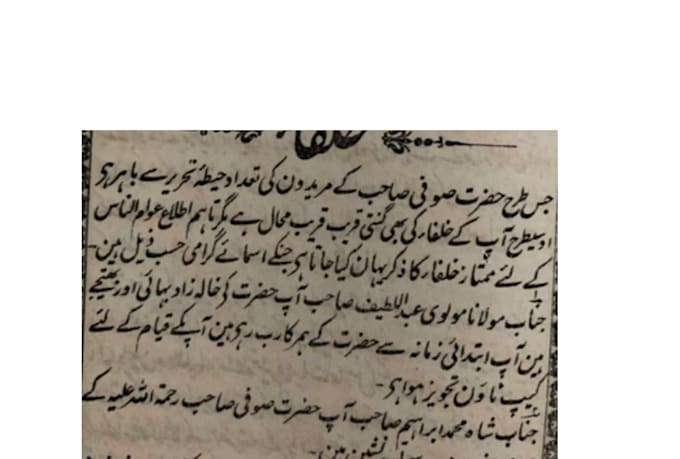 خلفاء
جس طرح حضرت صوفی صاحب کے مریدون کی تعداد حیطۂ تحریر سے باہر ہی
اوسیطرح آپ کے خلفار کی بھی گنتی قریب قریب محال ہے مگر تاہم اطلاع عوام الناس
کے لئے ممتاز خلفار کا ذکر یہان کیا جاتا ہی جنکے اسمائے گرامی حسب ذیل ہین۔
جناب مولانا مولوی عبداللطیف صاحب آپ حضرت کی خالہ زاد بہائی اور بھتیجے
ہین آپ ابتدائی زمانہ سے حضرت کے ہمرکاب رہی ہین آپکے قیام کے لئے
کیپ ٹاون تجویز ہوا ہی۔
جناب شاہ محمد ابراہیم صاحب آپ حضرت صوفی صاحب رحمۃ اللہ علیہ کے
نشین ہین۔